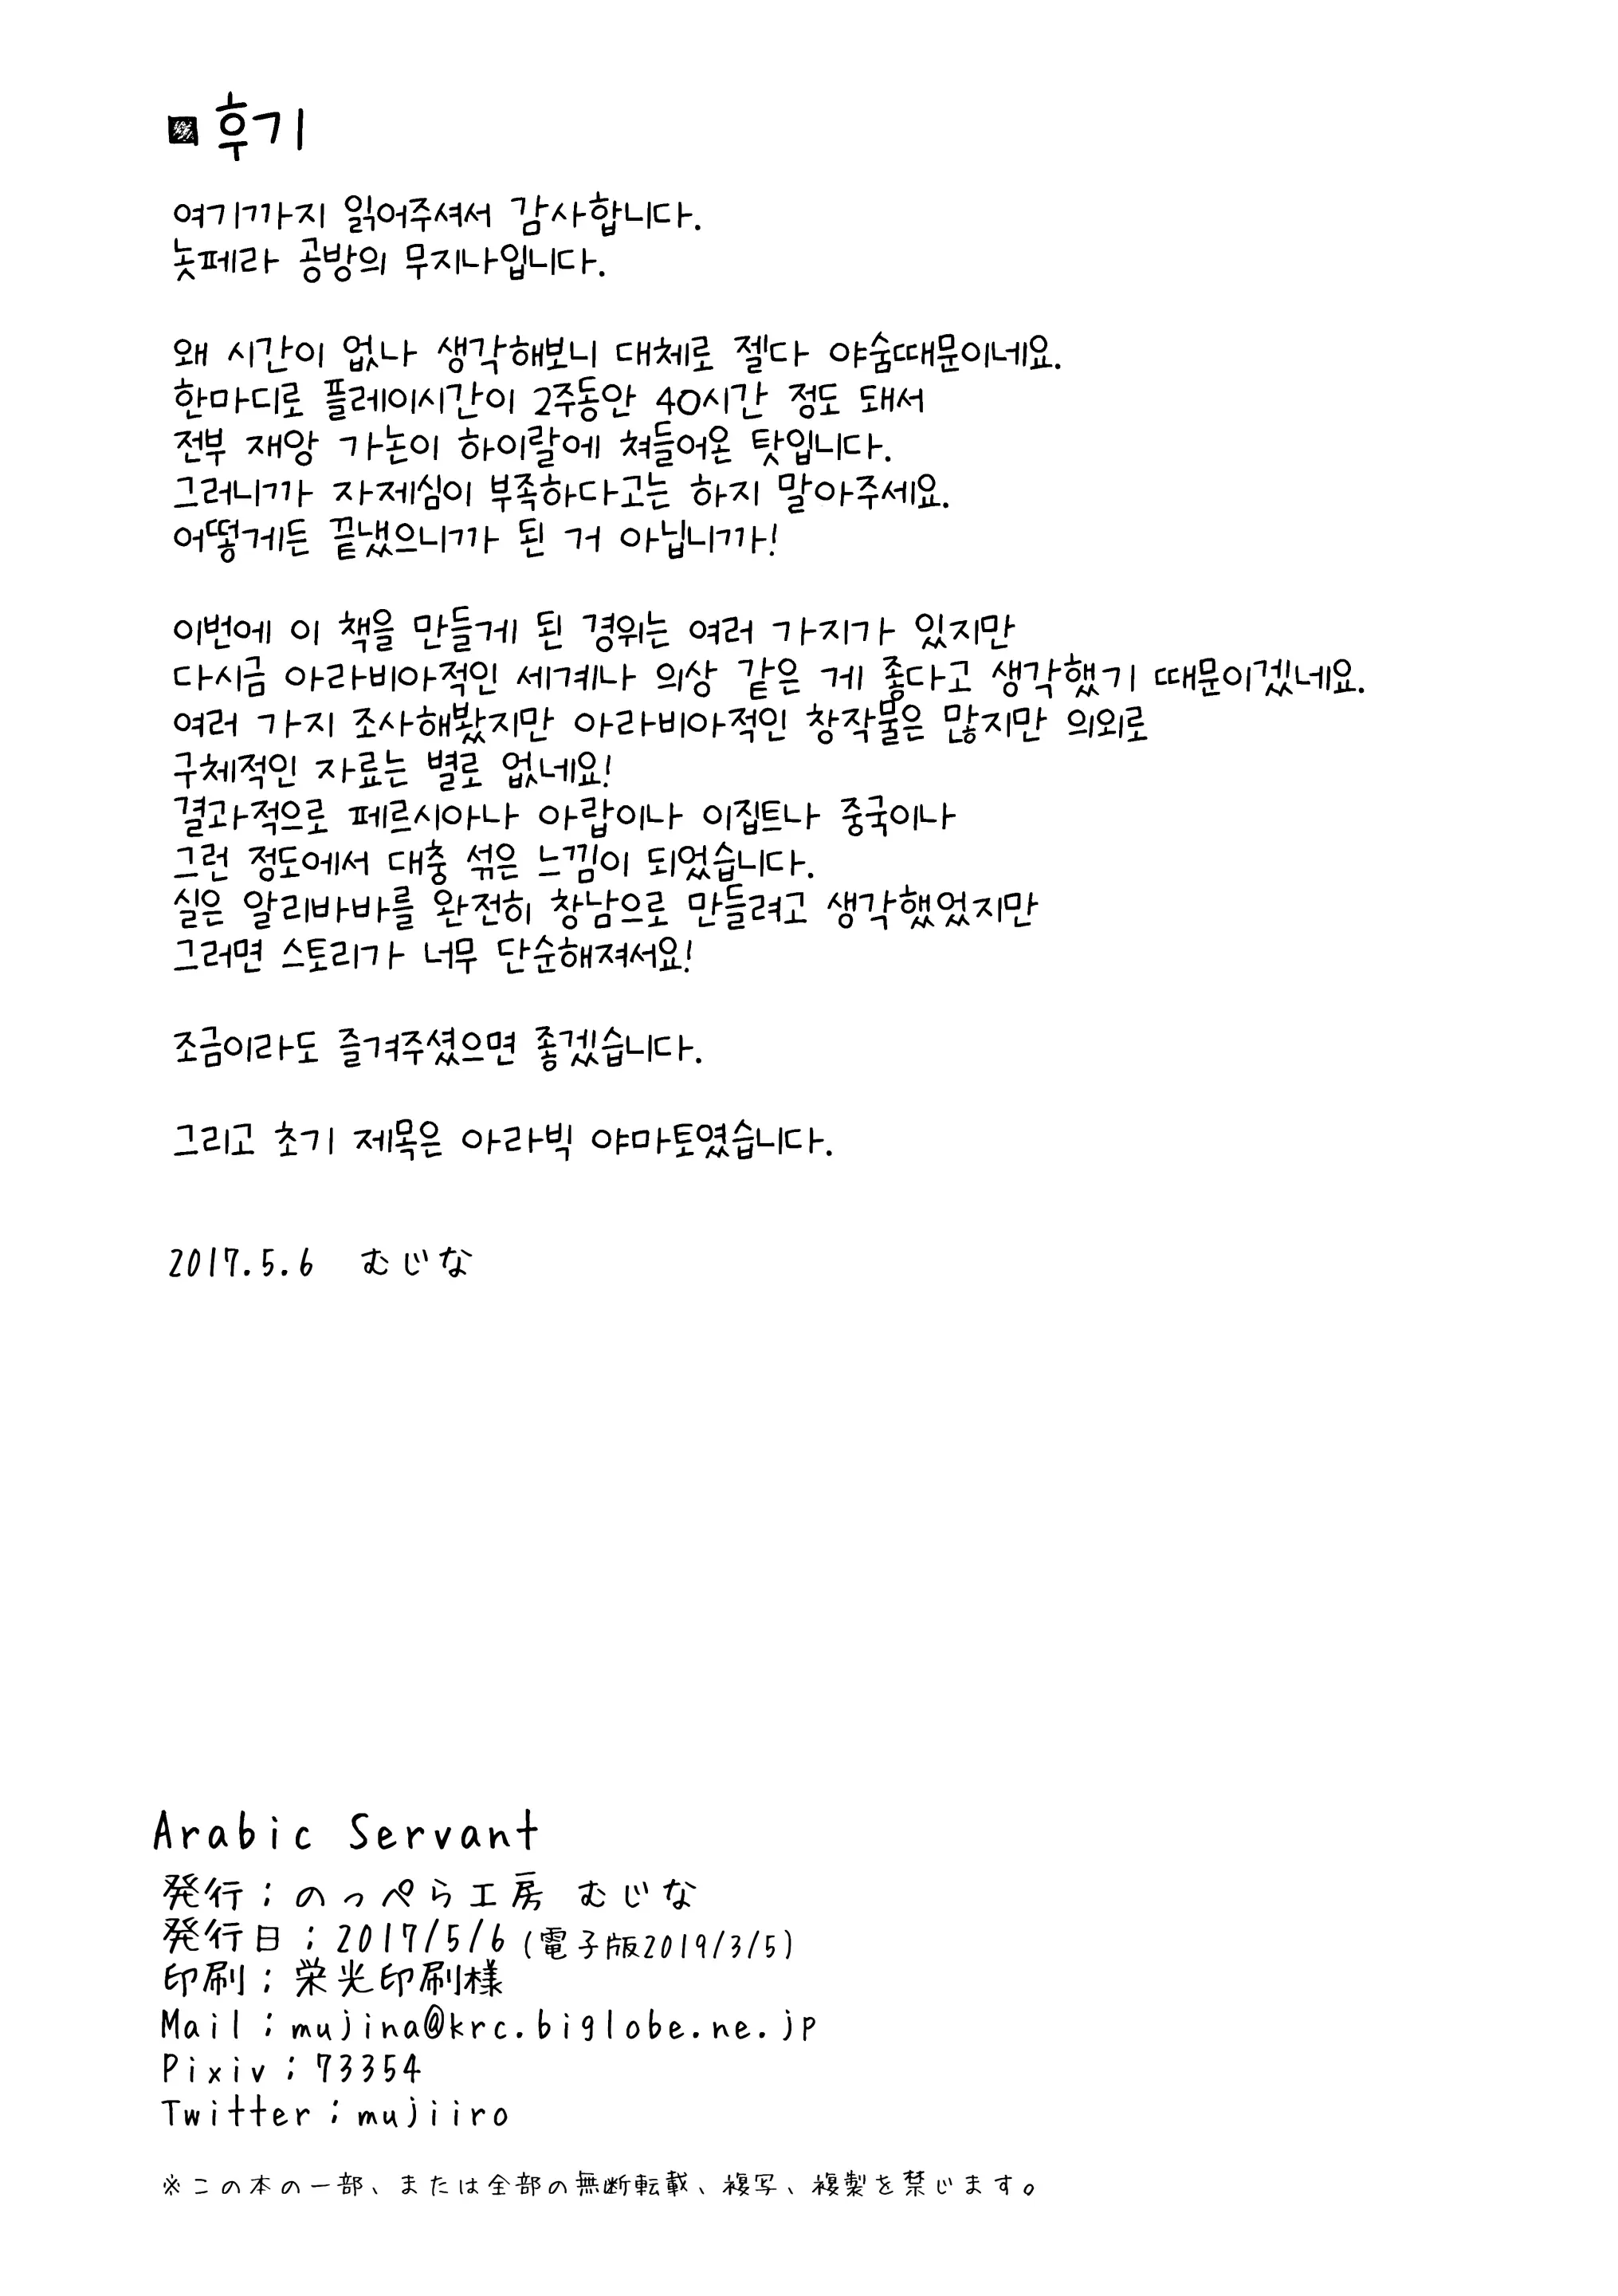 후기
여기까지 읽어주셔서 감사합니다.
놋페라 공방의 무지나입니다.
왜 시간이 없나 생각해보니 대체로 젤다 야숨때문이네요.
한마디로 플레이시간이 2주동안 40시간 정도 돼서
전부 재앙 가논이 하이랄에 쳐들어온 탓입니다.
그러니까 자제심이 부족하다고는 하지 말아주세요.
어떻게든 끝냈으니까 된 거 아닙니까!
이번에 이 책을 만들게 된 경위는 여러 가지가 있지만
다시금 아라비아적인 세계나 의상 같은 게 좋다고 생각했기 때문이겠네요.
여러 가지 조사해봤지만 아라비아적인 창작물은 많지만 의외로
구체적인 자료는 별로 없네요!
결과적으로 페르시아나 아랍이나 이집트나 중국이나
그런 정도에서 대충 섞은 느낌이 되었습니다.
실은 알리바바를 완전히 창남으로 만들려고 생각했었지만
그러면 스토리가 너무 단순해져서요!
조금이라도 즐겨주셨으면 좋겠습니다.
그리고 초기 제목은 아라빅 야마토였습니다.
2017.5.6 むじな
Arabic Servant
発行；のっぺら工房 むじな
発行日；2017/5/6 (電子版2019/3/5)
印刷；栄光印刷様
Mail；mujina@krc.biglobe.ne.jp
Pixiv；73354
Twitter；mujiiro
※この本の一部、または全部の無断転載、複写、複製を禁じます。